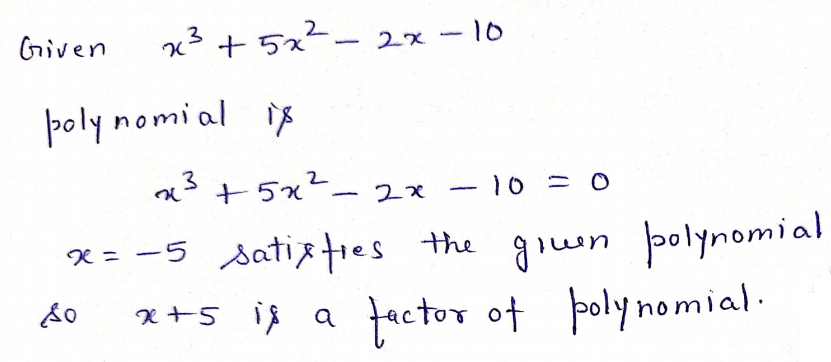 Given x³ + 5x² – 2x – 10
polynomial is
x³ + 5x² – 2x – 10 = 0
x = –5 satisfies the given polynomial
so x+5 is a factor of polynomial.